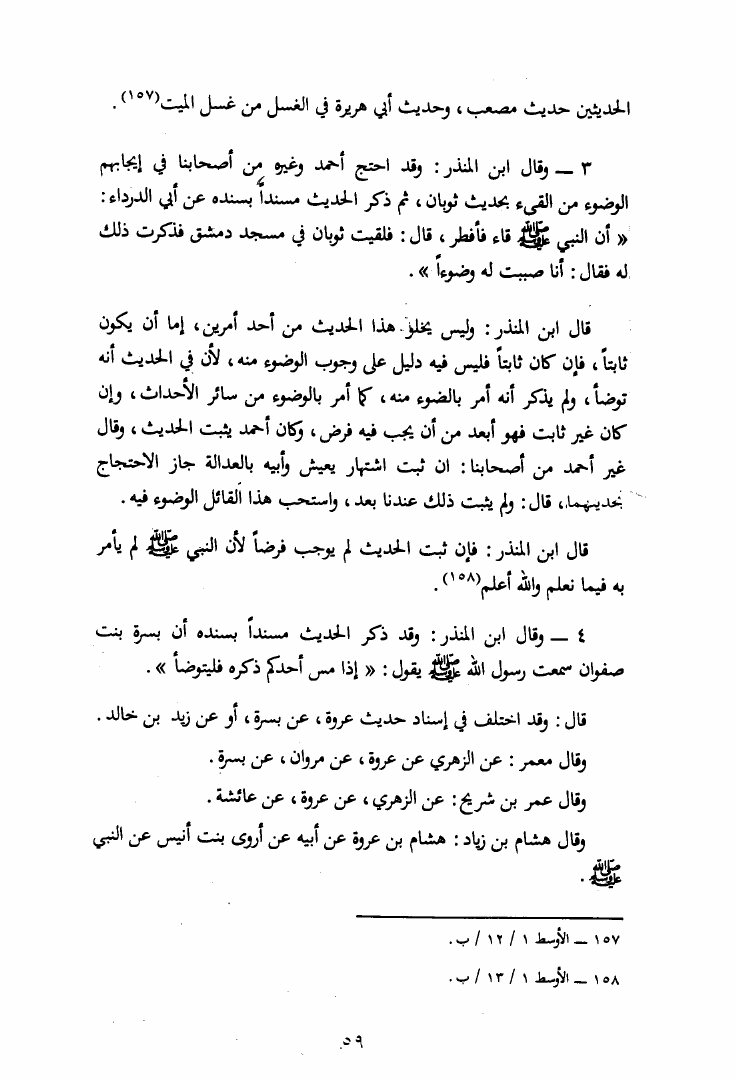 الحديثين حديث مصعب ، وحديث أبي هريرة في الغسل من غسل الميت(١٥٧) .
٣ — وقال ابن المنذر : وقد احتج أحمد وغيره من أصحابنا في إيجابهم
الوضوء من القيء بحديث ثوبان ، ثم ذكر الحديث مسنداً بسنده عن أبي الدرداء :
« أن النبي ﷺ قاء فأفطر ، قال : فلقيت ثوبان في مسجد دمشق فذكرت ذلك
له فقال : أنا صببت له وضوءاً » .
قال ابن المنذر : وليس يخلو هذا الحديث من أحد أمرين ، إما أن يكون
ثابتاً ، فإن كان ثابتاً فليس فيه دليل على وجوب الوضوء منه ، لأن في الحديث أنه
توضأ ، ولم يذكر أنه أمر بالضوء منه ، كما أمر بالوضوء من سائر الأحداث ، وإن
كان غير ثابت فهو أبعد من أن يجب فيه فرض ، وكان أحمد يثبت الحديث ، وقال
غير أحمد من أصحابنا : ان ثبت اشتهار يعيش وأبيه بالعدالة جاز الاحتجاج
بحديثهما ، قال : ولم يثبت ذلك عندنا بعد ، واستحب هذا القائل الوضوء فيه .
قال ابن المنذر : فإن ثبت الحديث لم يوجب فرضاً لأن النبي ﷺ لم يأمر
به فيما نعلم والله أعلم(١٥٨) .
٤ — وقال ابن المنذر : وقد ذكر الحديث مسنداً بسنده أن بسرة بنت
صفوان سمعت رسول الله ﷺ يقول : « إذا مس أحدكم ذكره فليتوضأ » .
قال : وقد اختلف في إسناد حديث عروة ، عن بسرة ، أو عن زيد بن خالد .
وقال معمر : عن الزهري عن عروة ، عن مروان ، عن بسرة .
وقال عمر بن شريح : عن الزهري ، عن عروة ، عن عائشة .
وقال هشام بن زياد : هشام بن عروة عن أبيه عن أروى بنت أنيس عن النبي
ﷺ .
١٥٧ — الأوسط ١ / ١٢ / ب .
١٥٨ — الأوسط ١ / ١٣ / ب .
٥٩